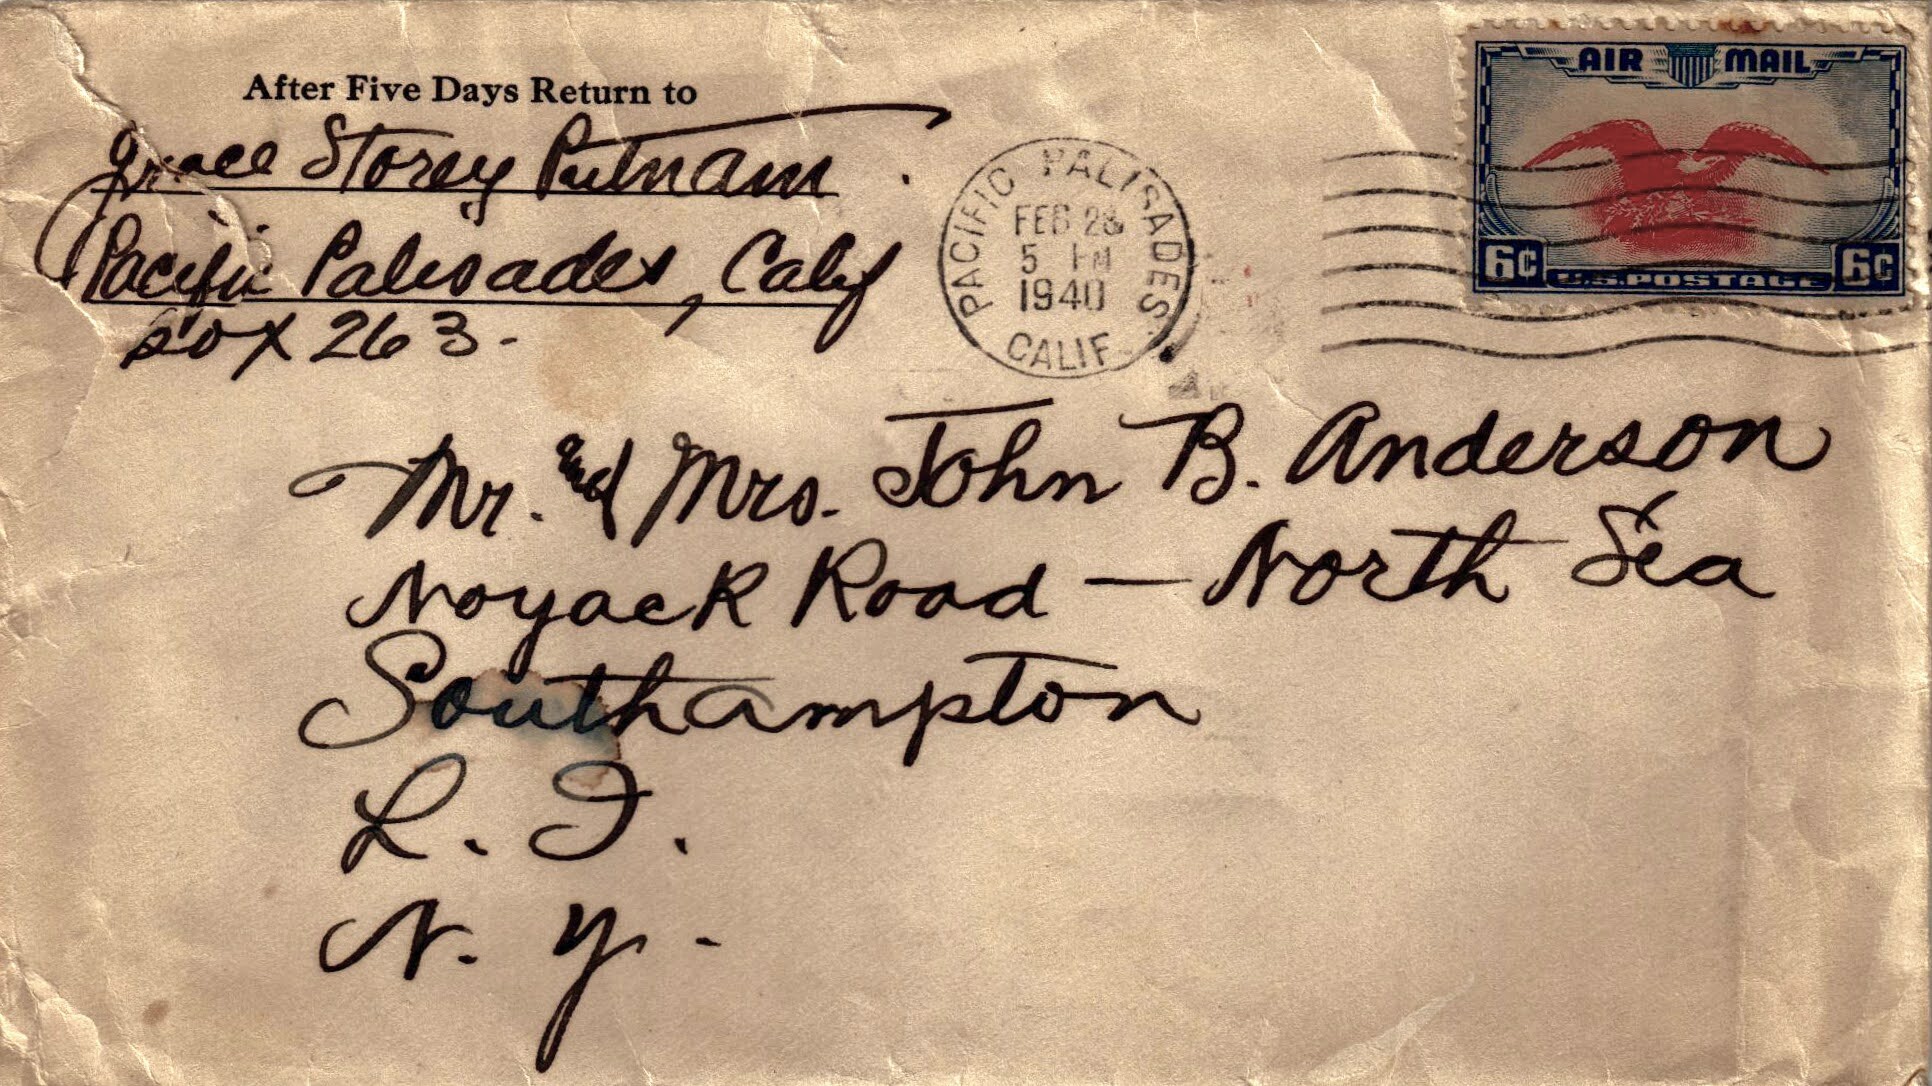 After Five Days Return to
Grace Storey Putnam.
Pacific Palisades, Calif
Box 263.
PACIFIC PALISADES.
FEB 28
5 PM
1940
CALIF.
AIR MAIL
6¢ U.S. POSTAGE 6¢
Mr. and Mrs. John B. Anderson
Noyack Road — North Sea
Southampton
L. I.
N. Y.